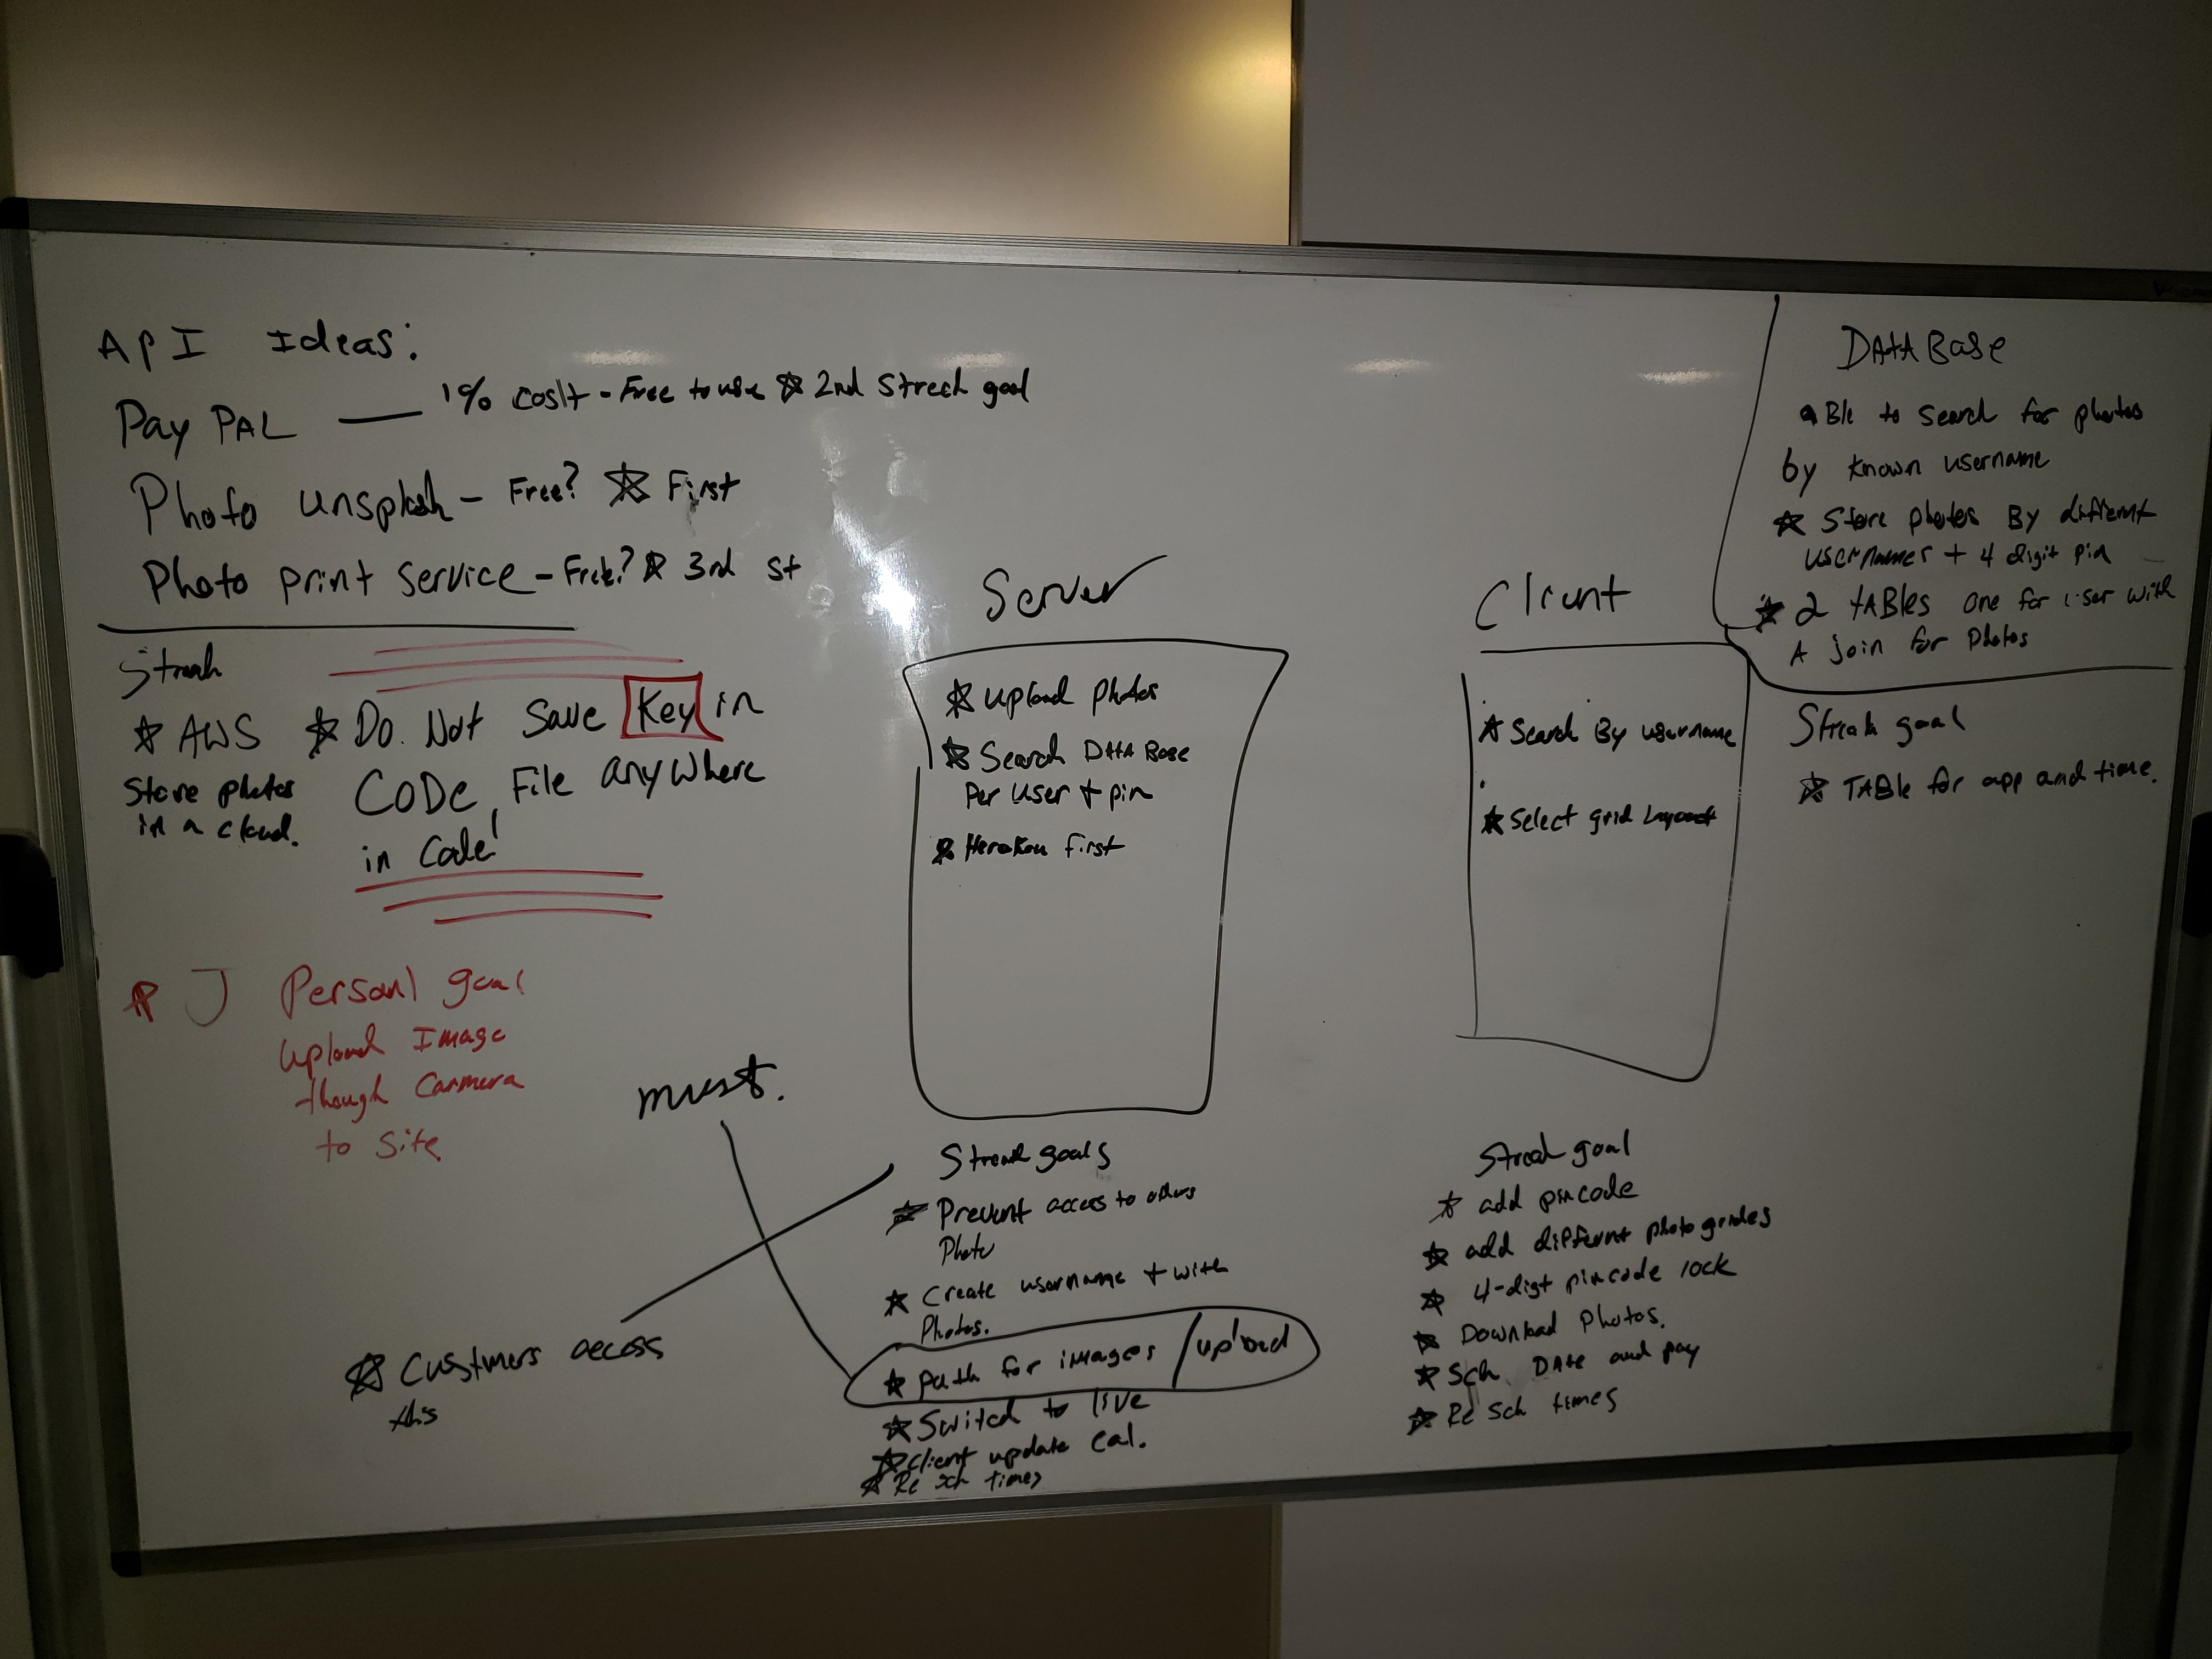 API Ideas:
PayPAL — 1% coslt - Free to use ☆ 2nd Strech goal
Photo unsplash - Free? ☆ First
Photo print service - Free? ☆ 3rd st
☆ AWS
Store photos
in a cloud.
☆ Do Not Save Key in
CODe File anyWhere
in Code!
☆ J Personl goal
upload Image
though Carmera
to Site
must.
☆ Custmers access
this
Server
☆ upload photos
☆ Search DATA Base
Per user + pin
☆ first
goals
☆ Prevent access to others
Photo
☆ Create username + with
Photos.
☆ path for images / upload
☆ Switch to live
☆ client update cal.
☆ Re sch times
Client
☆ Search By username
☆ Select grid Layout
goal
☆ add pincode
☆ add differnt photo grides
☆ 4-digt pincode lock
☆ Download Photos.
☆ Sch DAte and pay
☆ Re Sch times
DATABase
aBle to search for photos
by known username
☆ Store photos By different
usernames + 4 digit pin
☆ 2 tABles one for user with
A join for Photos
goal
☆ TABle for app and time.